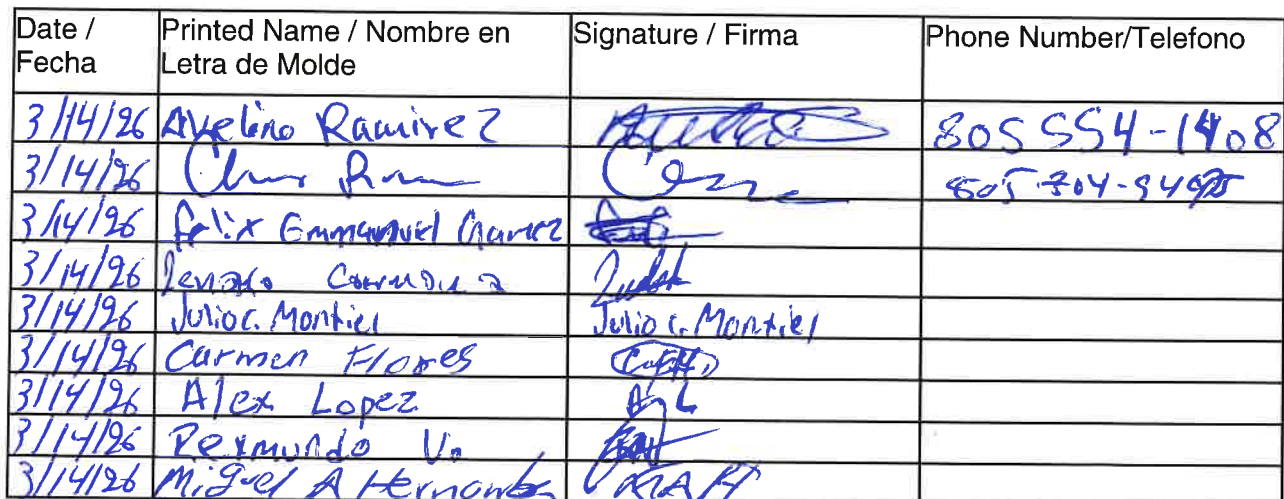 Date / Fecha Printed Name / Nombre en Letra de Molde Signature / Firma Phone Number/Telefono
3/14/26 Avelino Ramirez 805 554-1408
3/14/26
3/14/26 Felix Emmanuel
3/14/26
3/14/26 Julio c. Montiel Julio c. Montiel
3/14/26 Carmen Flores
3/14/26 Alex Lopez A L
3/14/26 Reymundo
3/14/26 Miguel A Hernandez MAH